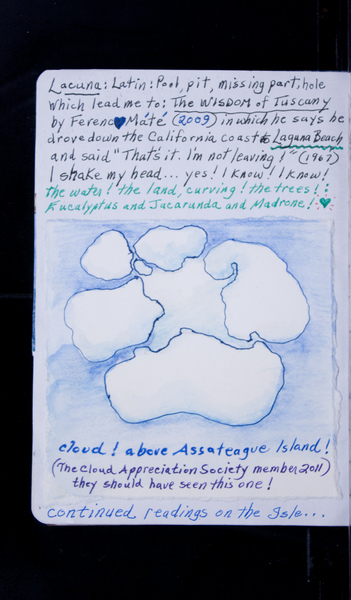 Lacuna: Latin: Pool, pit, missing part, hole
which lead me to: The WISDOM of Tuscany
by Ferenc Máté (2009) in which he says he
drove down the California coast to Laguna Beach
and said "That's it. I'm not leaving!" (1967)
I shake my head... yes! I know! I know!
the water! the land, curving! the trees!
Eucalyptus and Jacarunda and Madrone!
cloud! above Assateague Island!
(The Cloud Appreciation Society member 2011)
they should have seen this one!
continued readings on the Isle...